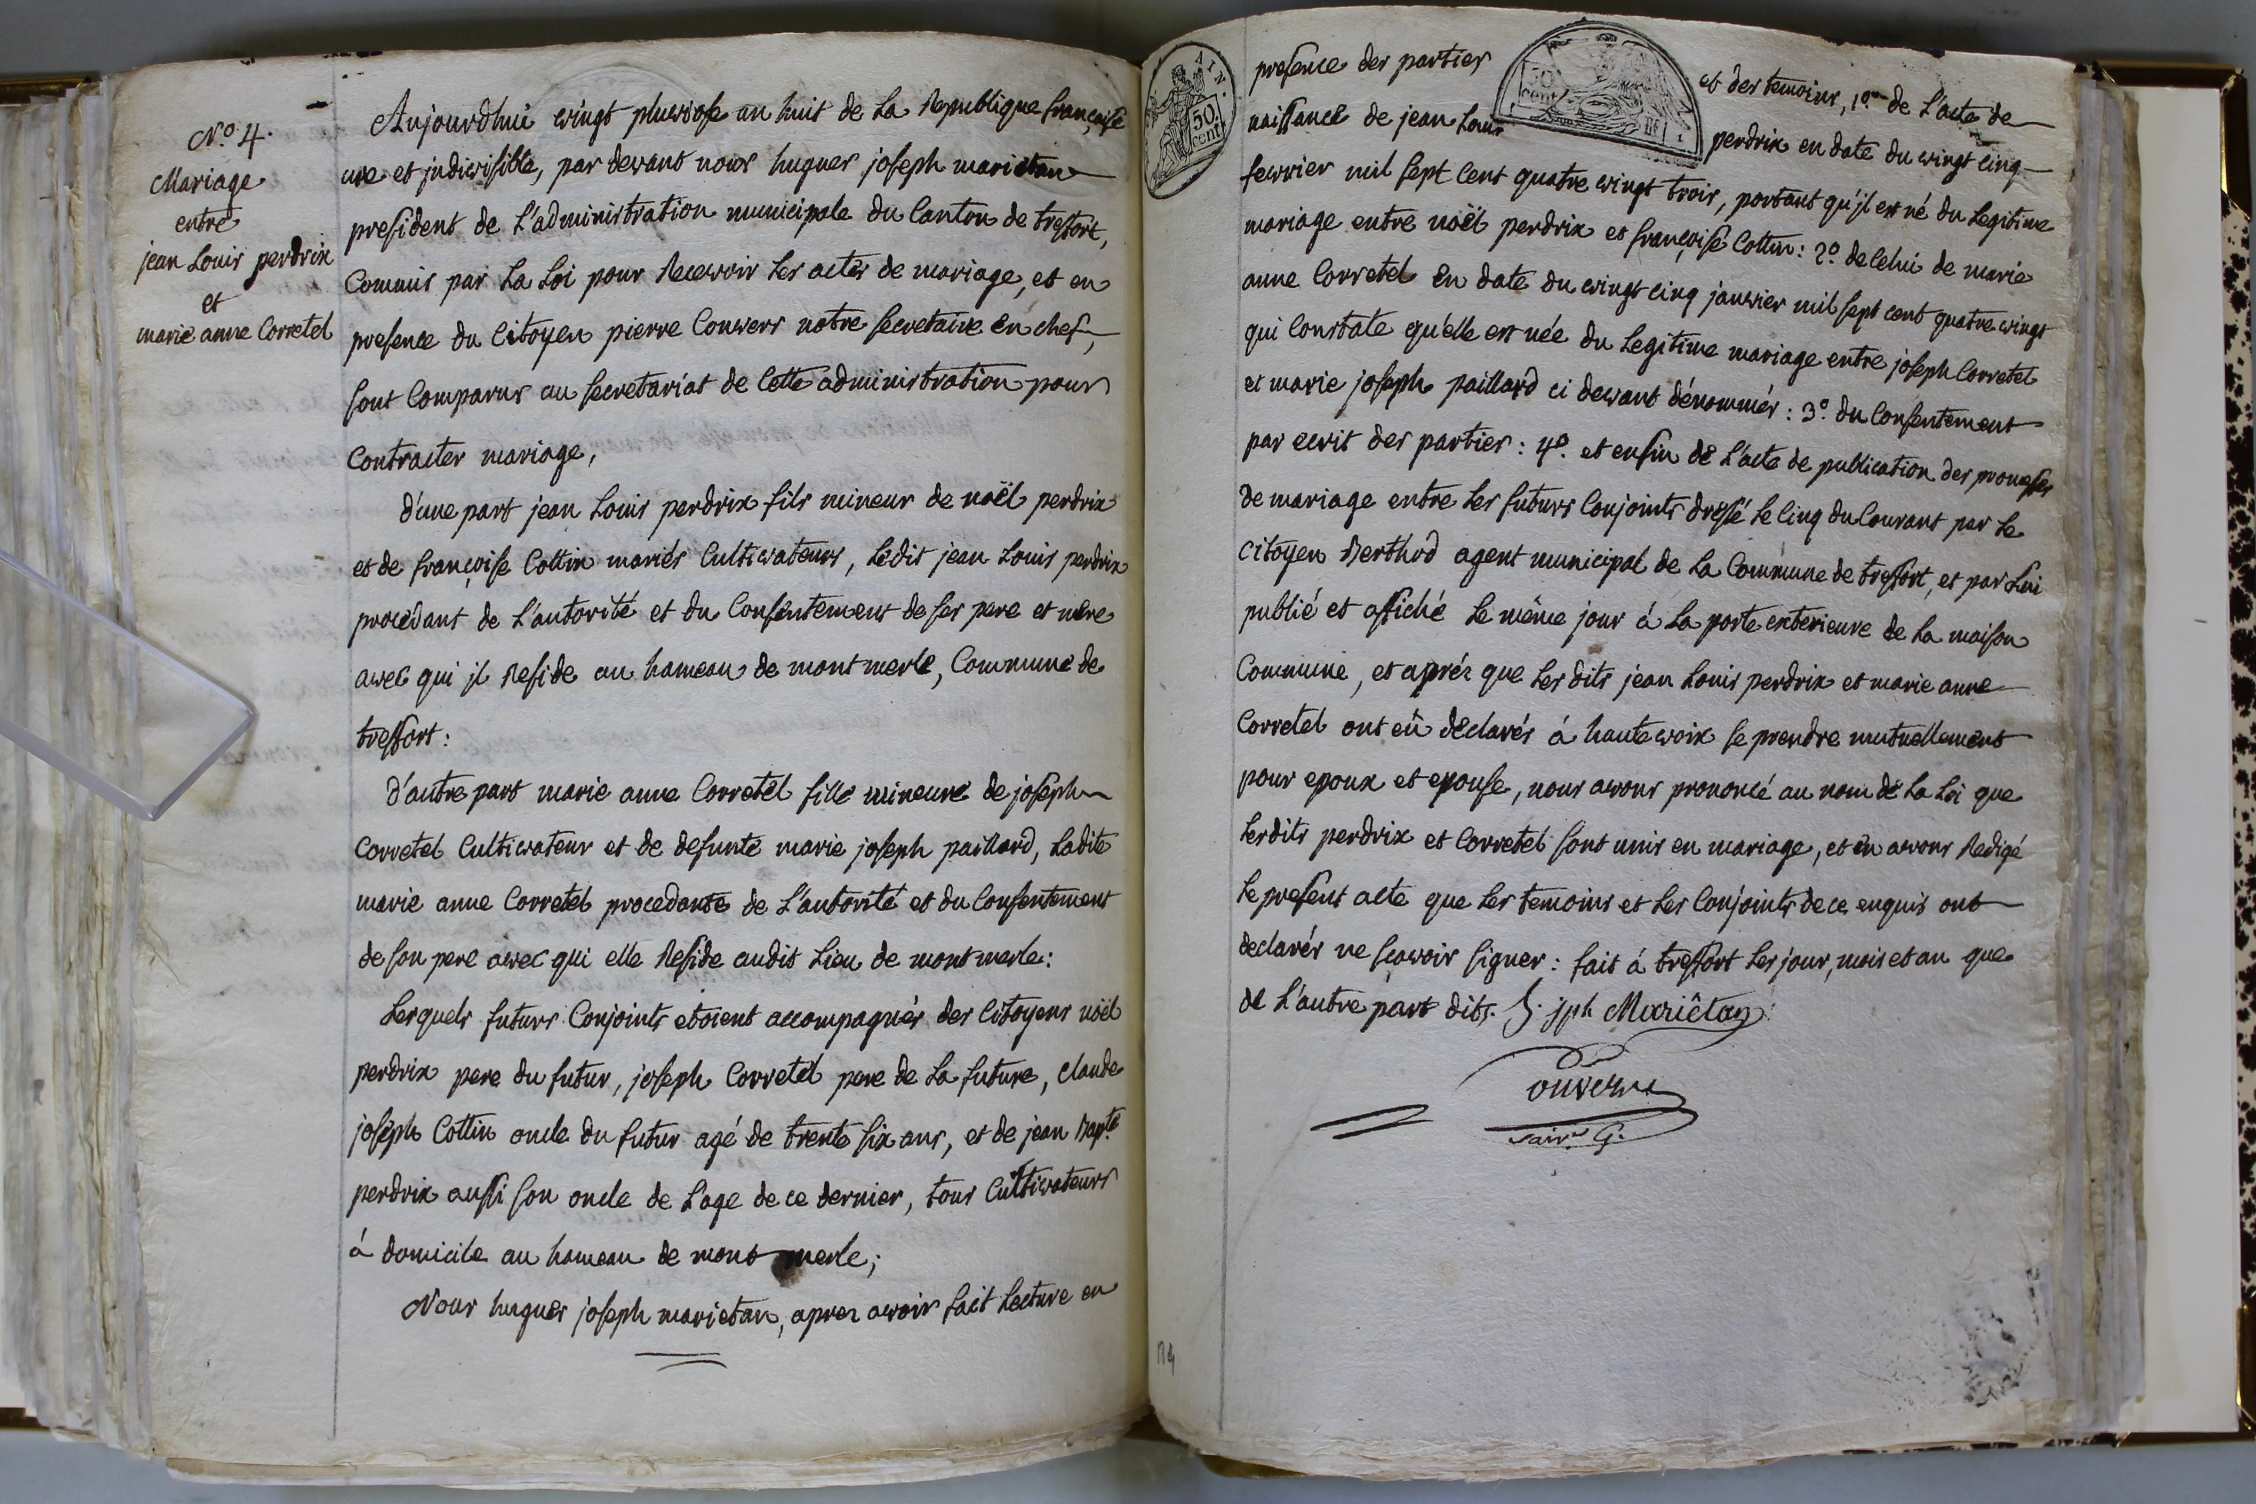 N.º 4.
Mariage
entre
jean Louis perdrix
et
marie anne Corretel
Aujourdhui vingt pluviose an huit de La Republique française
une et jndivisible, par devant nous hugues joseph marietan
president de L'administration municipale du Canton de treffort,
Commis par La Loi pour Recevoir Les actes de mariage, et en
presence du Citoyen pierre Convers notre secretaire en chef,
sont Comparus au secretariat de Cette administration pour
Contracter mariage,
d'une part jean Louis perdrix fils mineur de noël perdrix
et de françoise Cottin mariés Cultivateurs, Ledit jean Louis perdrix
procédant de L'autorité et du Consentement de ses pere et mere
avec qui jl Reside au hameau de mont merle, Commune de
treffort:
d'autre part marie anne Corretel fille mineure de joseph
Corretel Cultivateur et de defunte marie joseph paillard, Ladite
marie anne Corretel procedante de L'autorité et du Consentement
de son pere avec qui elle Reside audit Lieu de mont merle:
Lesquels futurs Conjoints etoient accompagnés des Citoyens noël
perdrix pere du futur, joseph Corretel pere de La future, claude
joseph Cottin oncle du futur agé de trente six ans, et de jean Bapte
perdrix aussi son oncle de L'age de ce dernier, tous Cultivateurs
á domicile au hameau de mont merle;
Nous hugues joseph marietan, aprez avoir fait Lecture en
AIN.
50 cent
50 cent
RF
presence des parties et des temoins, 1º de L'acte de
naissance de jean Louis perdrix en date du vingt cinq
fevrier mil sept cent quatre vingt trois, portant qu'jl est né du Legitime
mariage entre noël perdrix et françoise Cottin: 2º. de Celui de marie
anne Corretel en date du vingt cinq janvier mil sept cent quatre vingt
qui Constate qu'elle est née du Legitime mariage entre joseph Corretel
et marie joseph paillard ci devant dénommés: 3º. du Consentement
par ecrit des parties: 4º. et enfin de L'acte de publication des promesses
de mariage entre Les futurs Conjoints dressé Le Cinq du Courant par Le
Citoyen Berthod agent municipal de La Commune de treffort, et par Lui
publié et affiché Le même jour á La porte exterieure de La maison
Commune, et aprés que Les dits jean Louis perdrix et marie anne
Corretel ont eû déclarés á haute voix se prendre mutuellement
pour epoux et epouse, nous avons prononcé au nom de La Loi que
Lesdits perdrix et Corretel sont unis en mariage, et en avons Redigé
Le present acte que Les temoins et Les Conjoints de ce enquis ont
declarés ne scavoir signer: fait á treffort Les jour, mois et an que
de L'autre part dits. h. jph Mariêtan
Convers